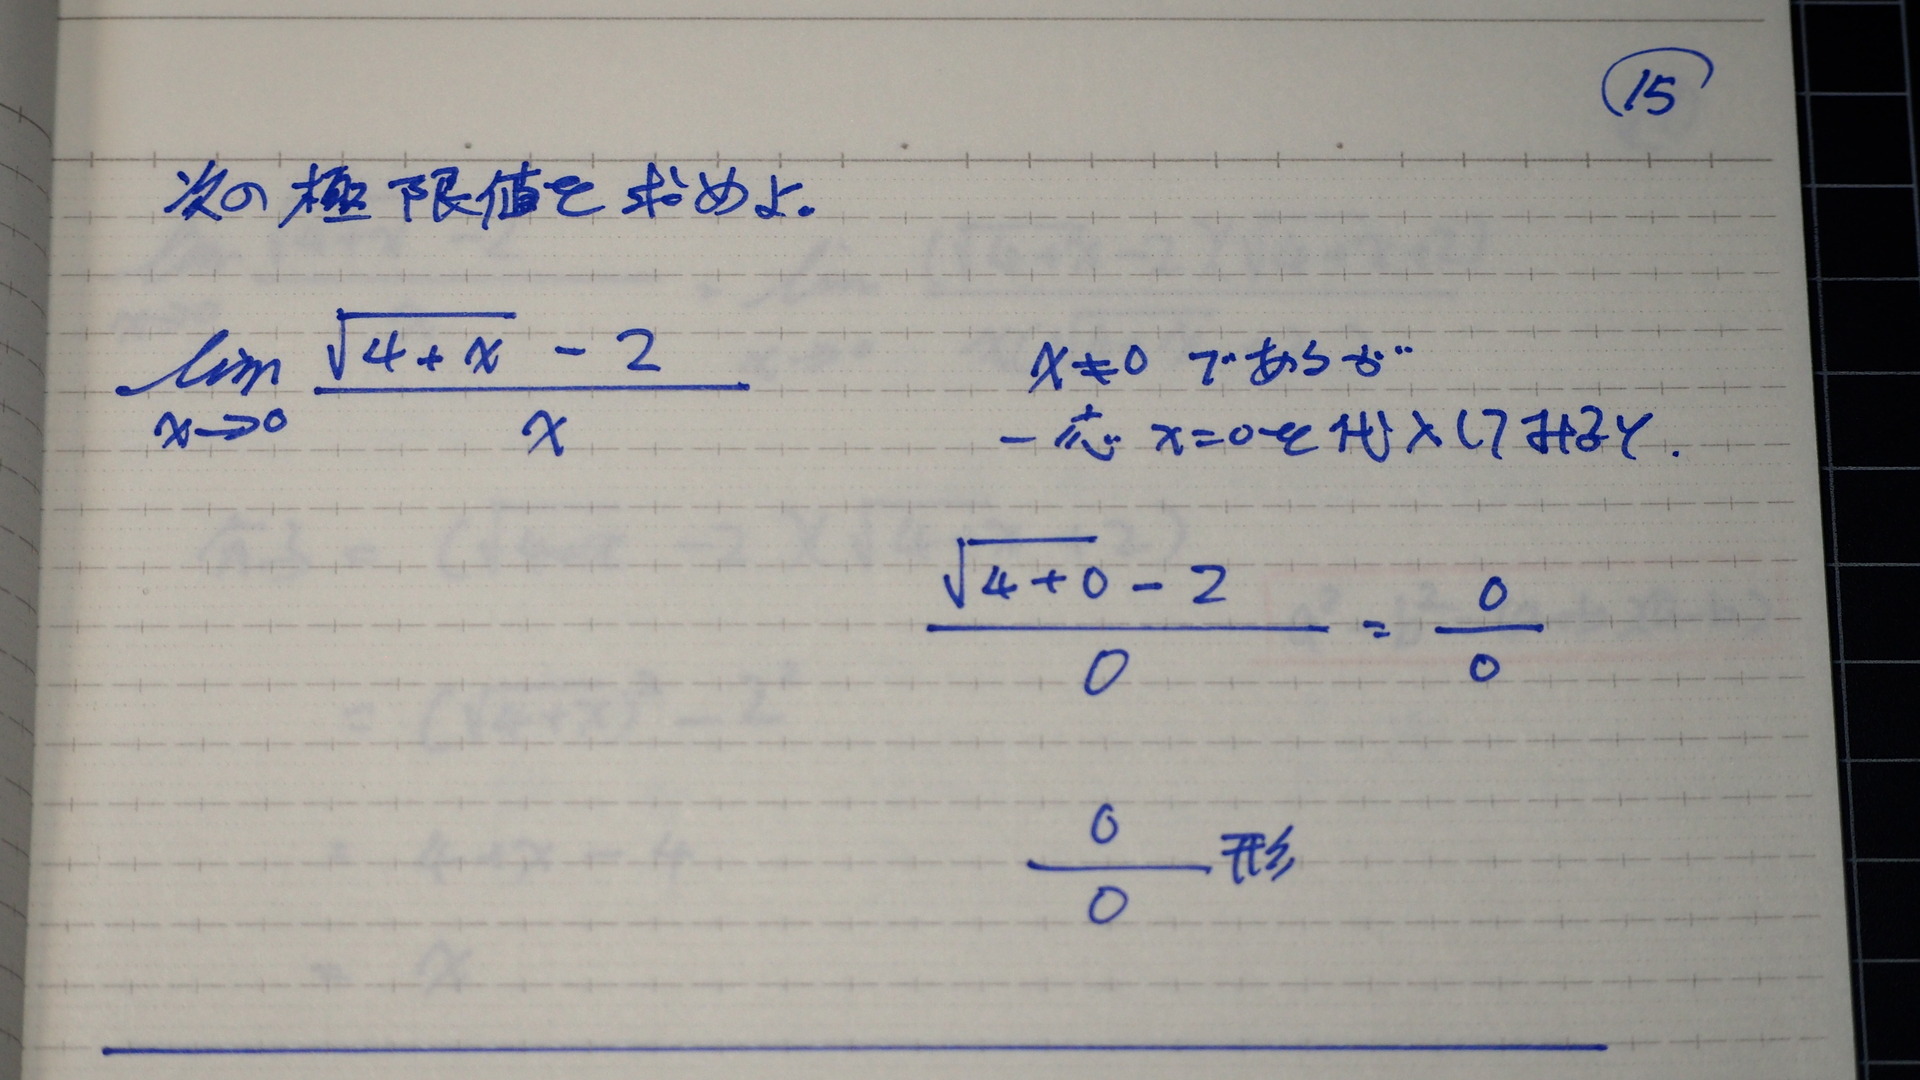 15
次の極限値を求めよ.
lim x→0 (√(4+x) - 2) / x
x≠0 であるが…
一応 x=0を代入してみると.
(√(4+0) - 2) / 0 = 0/0
0/0 形